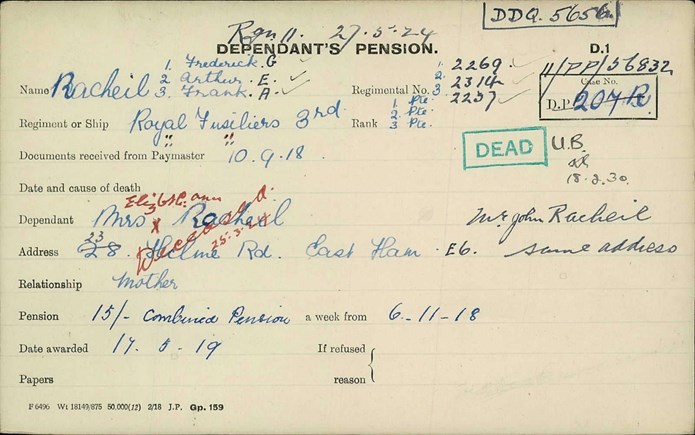 Rgn 11. 27.5.24
DDQ. 5656
DEPENDANT'S PENSION.
D.1
11/PP/56832
Case No.
D.P. 207 R
1. Frederick. G
Name Racheil 2 Arthur. E.
3. Frank. A
Regimental No. 1. 2269.
2. 2314
3. 2237
Regiment or Ship Royal Fusiliers 3rd
Rank 1. Pte.
2. Pte.
3 Pte.
Documents received from Paymaster 10.9.18
DEAD
U.B.
18.2.30.
Date and cause of death
Elizbth. ann
Dependant Mrs Racheil
Deceased.
25.3.24
Mr John Racheil
same address
23
Address 28. Rd. East Ham. E6.
Relationship Mother
Pension 15/- Combined Pension a week from 6-11-18
Date awarded 17.5.19
If refused
reason
Papers
F 6496 Wt 18149/875 50,000(12) 2/18 J.P. Gp. 159